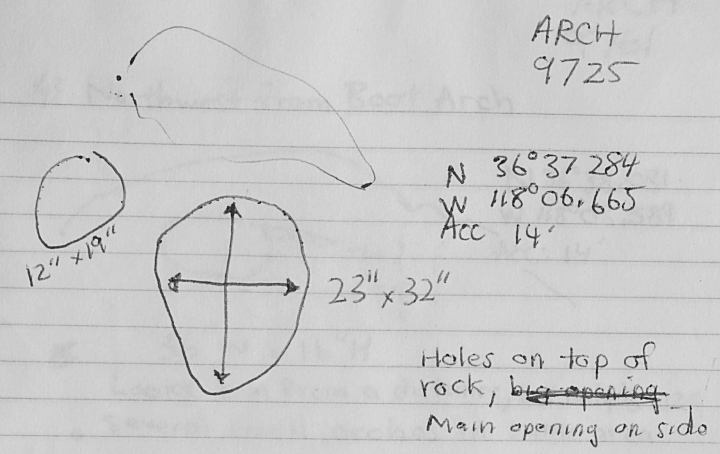 ARCH
9725
N 36°37 284
W 118°06.665
Acc 14'
12" x 19"
23" x 32"
Holes on top of
rock, big opening
Main opening on side